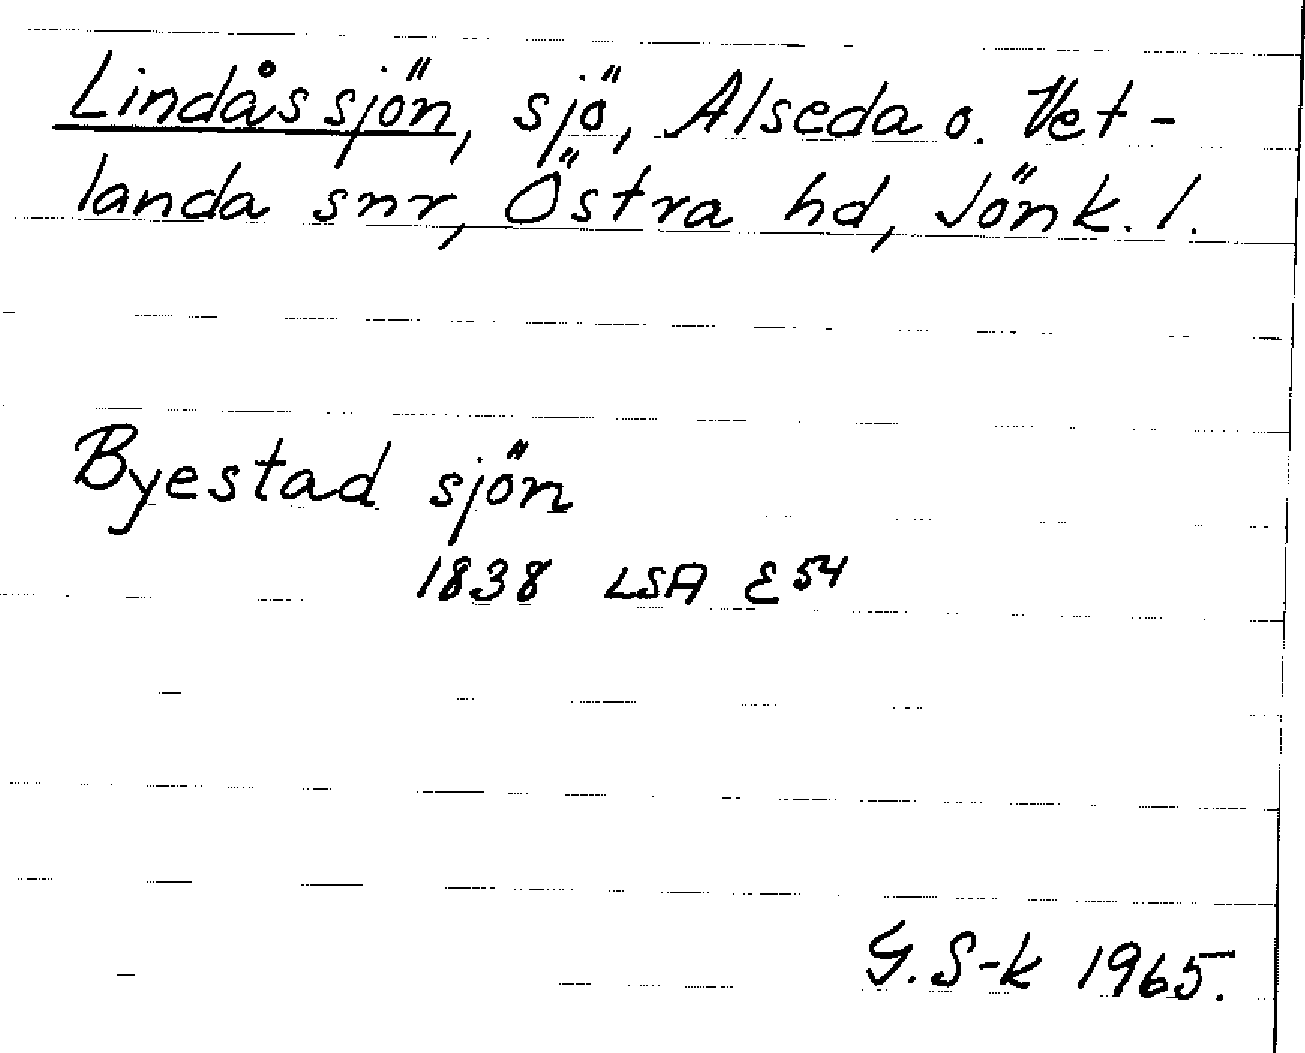 Lindåssjön, sjö, Alseda o. Vet-
landa snr, Östra hd, Jönk. l.
Byestad sjön
1838 LSA E 54
G. S-k 1965.